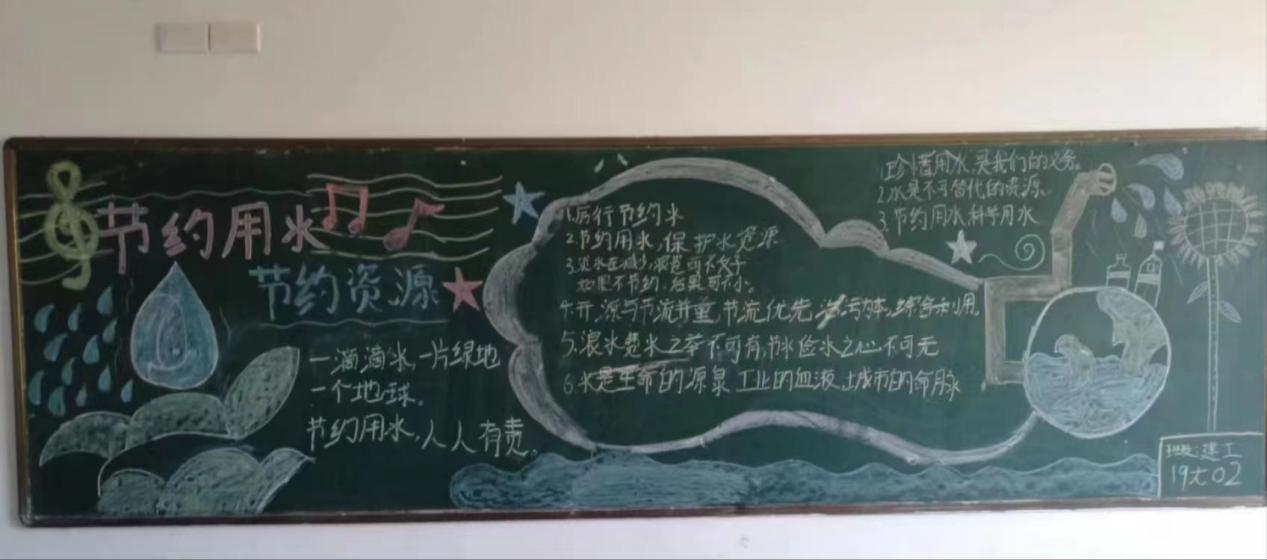 节约用水
节约资源
一滴滴水,一片绿地
一个地球。
节约用水,人人有责。
1.厉行节约水
2.节约用水,保护水资源
3.淡水在减少,浪费可不
如果不节约,后果可不小。
4.开源与节流并重,节流优先,治污为本,综合利用
5.浪水费水之举不可有,节水俭水之心不可无
6.水是生命的源泉 工业的血液 城市的命脉
1.珍惜用水,是我们的义务。
2.水是不可替代的资源。
3.节约用水,科学用水
班级:建工
19大02